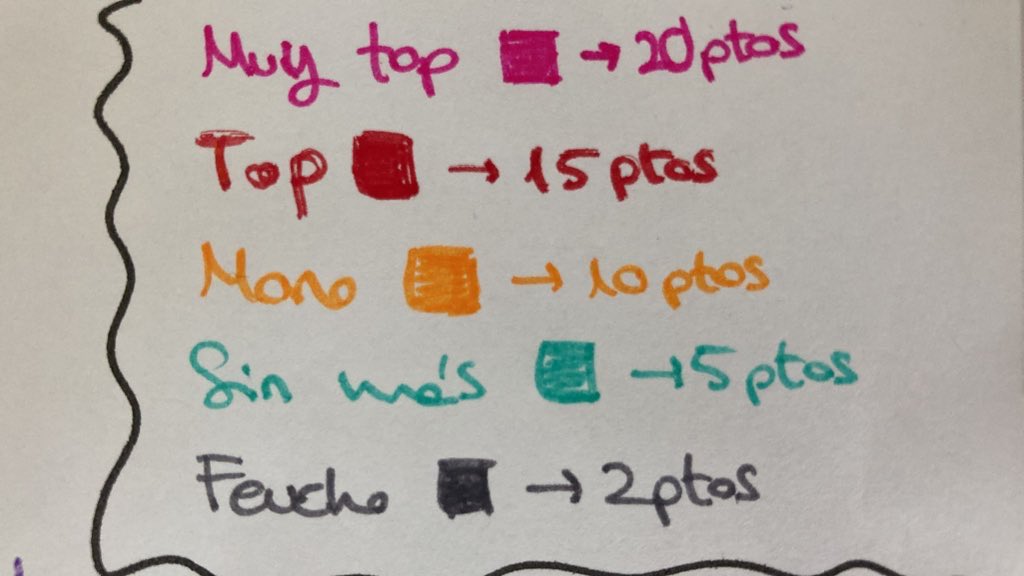 Muy top → 20 ptos
Top → 15 ptos
Mono → 10 ptos
Sin más → 5 ptos
Feucho → 2 ptos